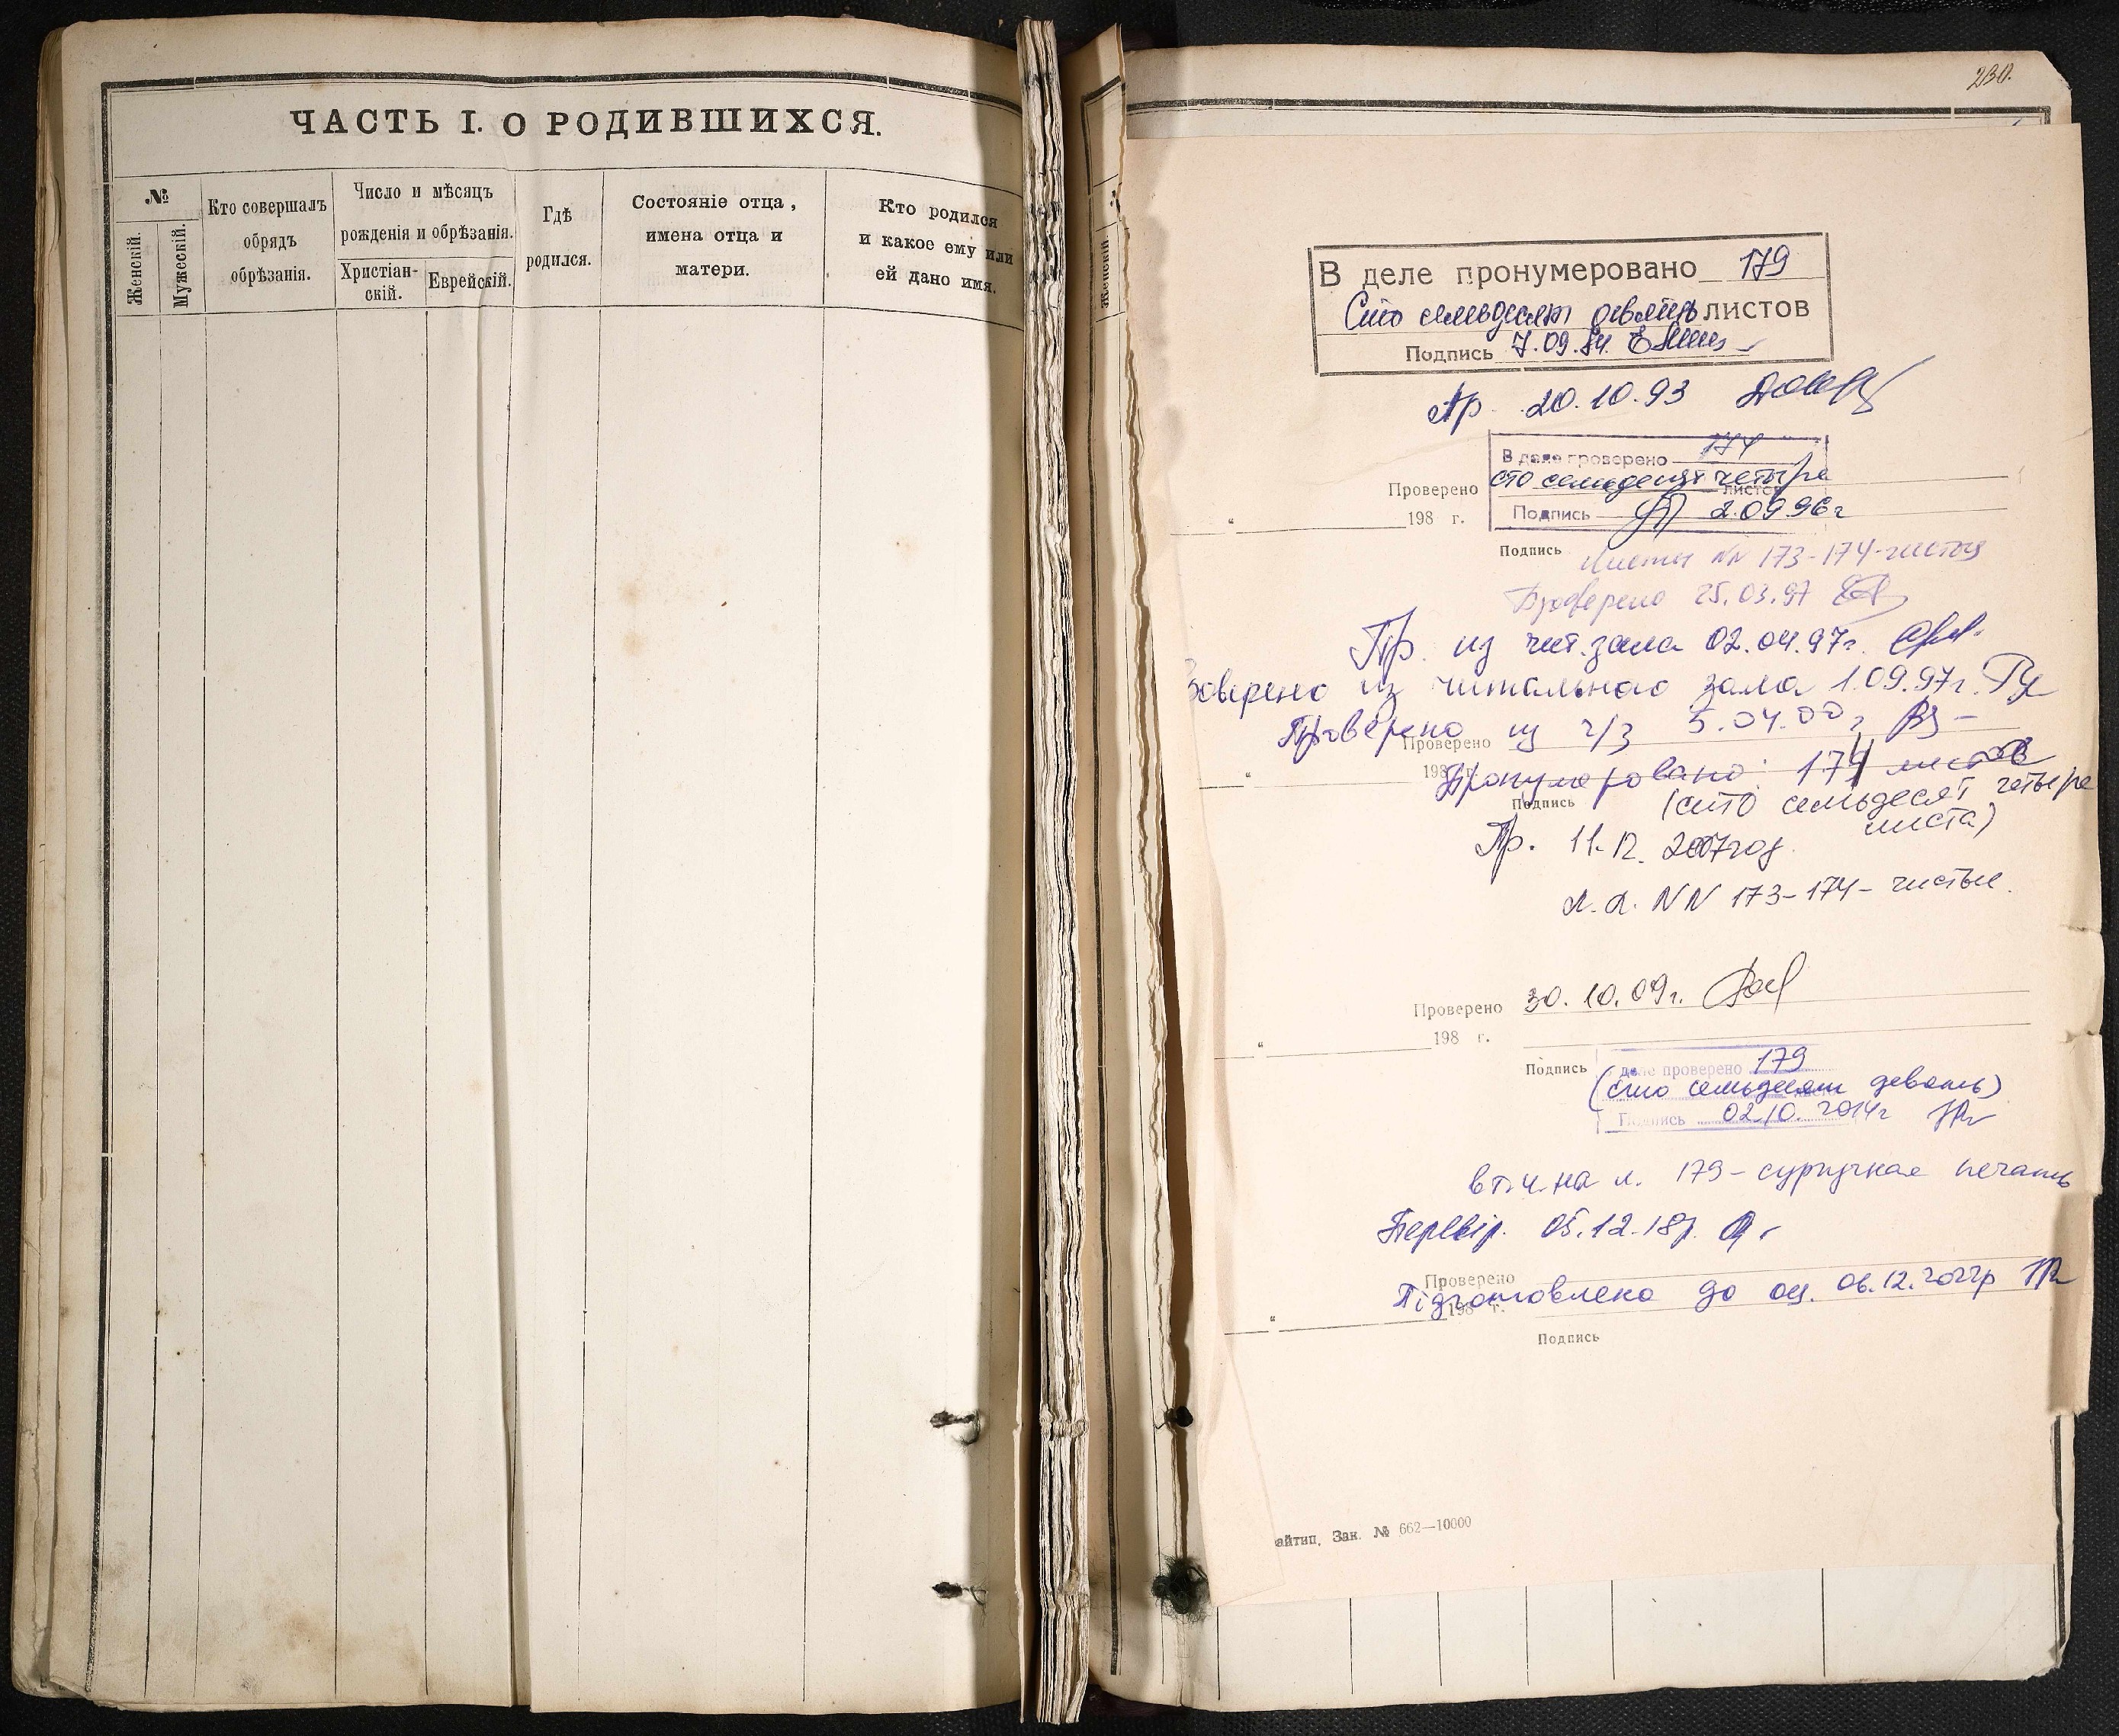 ЧАСТЬ I. О РОДИВШИХСЯ.
№
Женскій.
Мужескій.
Кто совершалъ
обрядъ
обрѣзанія.
Число и мѣсяцъ
рожденія и обрѣзанія.
Христіан-
скій.
Еврейскій.
Гдѣ
родился.
Состояніе отца,
имена отца и
матери.
Кто родился
и какое ему или
ей дано имя.
Женскій.
230.
В деле пронумеровано 179
Сто семьдесят девять листов
Подпись 7.09.84.
Пр. 20.10.93
В деле проверено 174
сто семьдесят четыре
листов
Подпись 2.09.96г
Проверено
198 г.
Подпись
Листы NN 173-174-чистые
Проверено 25.03.97
Пр. из чит.зала 02.04.97г.
роверено из читального зала 1.09.97г.
Проверено из ч/з 5.04.00г
Проверено
198 г.
Пронумеровано: 174 листов
Подпись
(сто семьдесят четыре
листа)
Пр. 11.12.2007год.
л.л. NN 173-174- чистые.
Проверено 30.10.09г.
198 г.
Подпись
деле проверено 179
(сто семьдесят девять)
Подпись 02.10.2014г
в т.ч. на л. 179-сургучная печать
Перевір. 05.12.18р.
Проверено
Підготовлено до оц. 06.12.2022р
198 г.
Подпись
айтип, Зак. № 662—10000